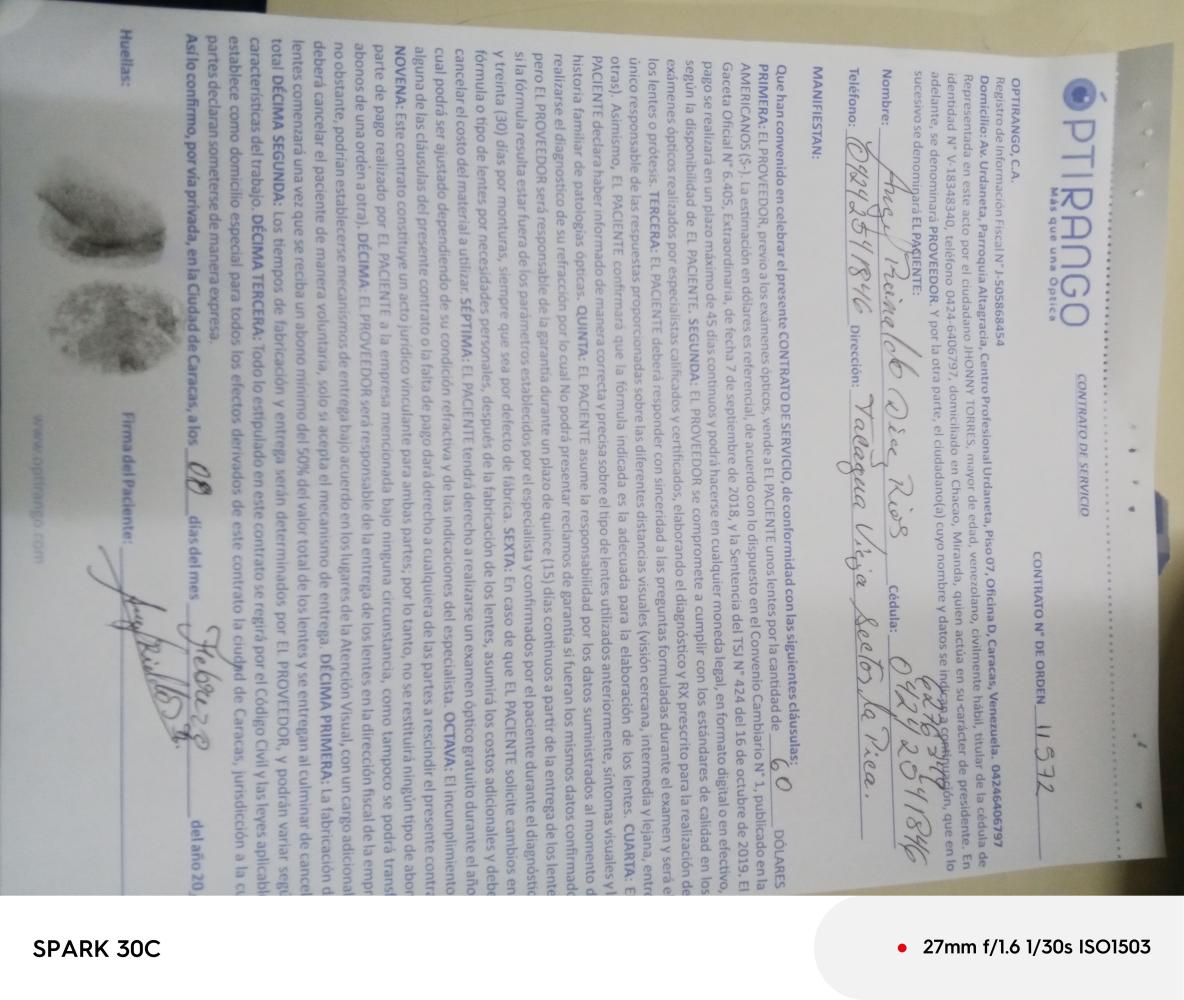 ÓPTIRANGO
Más que una Óptica
CONTRATO DE SERVICIO
CONTRATO N° DE ORDEN 11972
OPTIRANGO, C.A.
Registro de Información Fiscal N° J-505868454
Domicilio: Av. Urdaneta, Parroquia Altagracia, Centro Profesional Urdaneta, Piso 07, Oficina D, Caracas, Venezuela. 04246406797
Representada en este acto por el ciudadano JHONNY TORRES, mayor de edad, venezolano, civilmente hábil, titular de la cédula de
identidad N° V-18348340, teléfono 0424-6406797, domiciliado en Chacao, Miranda, quien actúa en su carácter de presidente. En
adelante, se denominará PROVEEDOR. Y por la otra parte, el ciudadano(a) cuyo nombre y datos se indican a continuación, que en lo
sucesivo se denominará EL PACIENTE:
Nombre: Angel Reinaldo Diaz Rios Cédula:
Teléfono: 04242541846 Dirección: Tacagua Vieja Sector la Pica.
MANIFIESTAN:
Que han convenido en celebrar el presente CONTRATO DE SERVICIO, de conformidad con las siguientes cláusulas:
PRIMERA: EL PROVEEDOR, previo a los exámenes ópticos, vende a EL PACIENTE unos lentes por la cantidad de 60 DÓLARES
AMERICANOS ($-). La estimación en dólares es referencial, de acuerdo con lo dispuesto en el Convenio Cambiario N° 1, publicado en la
Gaceta Oficial N° 6.405, Extraordinaria, de fecha 7 de septiembre de 2018, y la Sentencia del TSJ N° 424 del 16 de octubre de 2019. El
pago se realizará en un plazo máximo de 45 días continuos y podrá hacerse en cualquier moneda legal, en formato digital o en efectivo,
según la disponibilidad de EL PACIENTE. SEGUNDA: EL PROVEEDOR se compromete a cumplir con los estándares de calidad en los
exámenes ópticos realizados por especialistas calificados y certificados, elaborando el diagnóstico y RX prescrito para la realización de
los lentes o prótesis. TERCERA: EL PACIENTE deberá responder con sinceridad a las preguntas formuladas durante el examen y será el
único responsable de las respuestas proporcionadas sobre las diferentes distancias visuales (visión cercana, intermedia y lejana, entre
otras). Asimismo, EL PACIENTE confirmará que la fórmula indicada es la adecuada para la elaboración de los lentes. CUARTA: E
PACIENTE declara haber informado de manera correcta y precisa sobre el tipo de lentes utilizados anteriormente, síntomas visuales y
historia familiar de patologías ópticas. QUINTA: EL PACIENTE asume la responsabilidad por los datos suministrados al momento d
realizarse el diagnostico de su refracción por lo cual No podrá presentar reclamos de garantía si fueran los mismos datos confirmado
pero EL PROVEEDOR será responsable de la garantía durante un plazo de quince (15) días continuos a partir de la entrega de los lente
si la fórmula resulta estar fuera de los parámetros establecidos por el especialista y confirmados por el paciente durante el diagnóstic
y treinta (30) días por monturas, siempre que sea por defecto de fábrica. SEXTA: En caso de que EL PACIENTE solicite cambios en
fórmula o tipo de lentes por necesidades personales, después de la fabricación de los lentes, asumirá los costos adicionales y debe
cancelar el costo del material a utilizar. SÉPTIMA: EL PACIENTE tendrá derecho a realizarse un examen óptico gratuito durante el año
cual podrá ser ajustado dependiendo de su condición refractiva y de las indicaciones del especialista. OCTAVA: El incumplimiento
alguna de las cláusulas del presente contrato o la falta de pago dará derecho a cualquiera de las partes a rescindir el presente contra
NOVENA: Este contrato constituye un acto jurídico vinculante para ambas partes; por lo tanto, no se restituirá ningún tipo de abor
parte de pago realizado por EL PACIENTE a la empresa mencionada bajo ninguna circunstancia, como tampoco se podrá transf
abonos de una orden a otra). DÉCIMA: EL PROVEEDOR será responsable de la entrega de los lentes en la dirección fiscal de la empr
no obstante, podrían establecerse mecanismos de entrega bajo acuerdo en los lugares de la Atención Visual, con un cargo adicional
deberá cancelar el paciente de manera voluntaria, solo si acepta el mecanismo de entrega. DÉCIMA PRIMERA: La fabricación d
lentes comenzará una vez que se reciba un abono mínimo del 50% del valor total de los lentes y se entregan al culminar de cancel
total DÉCIMA SEGUNDA: Los tiempos de fabricación y entrega serán determinados por EL PROVEEDOR, y podrán variar segú
características del trabajo. DÉCIMA TERCERA: Todo lo estipulado en este contrato se regirá por el Código Civil y las leyes aplicabl
establece como domicilio especial para todos los efectos derivados de este contrato la ciudad de Caracas, jurisdicción a la cu
partes declaran someterse de manera expresa.
Así lo confirmo, por vía privada, en la Ciudad de Caracas, a los 08 días del mes Febrero del año 20
Huellas:
Firma del Paciente:
www.optirango.com
SPARK 30C
27mm f/1.6 1/30s ISO1503